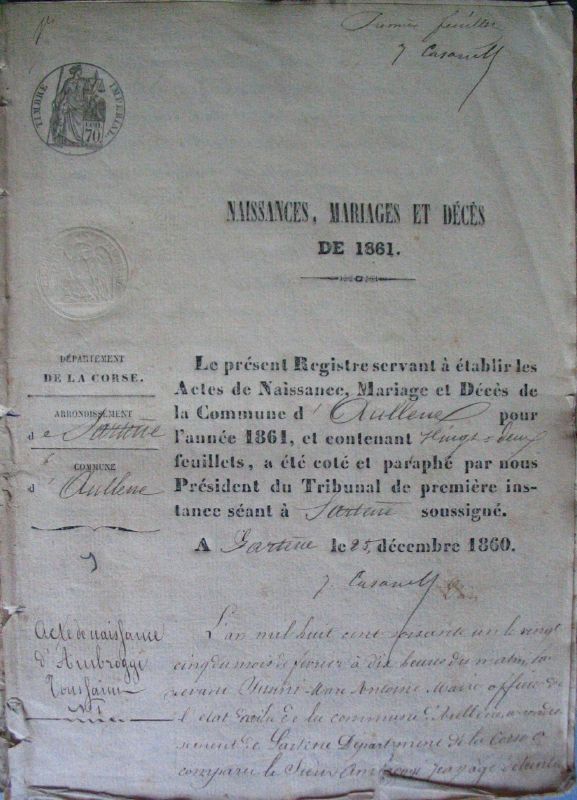 Premier feuillet
TIMBRE IMPERIAL
70
NAISSANCES, MARIAGES ET DÉCÈS
DE 1861.
DÉPARTEMENT
DE LA CORSE.
ARRONDISSEMENT
de Sartène
COMMUNE
d'Aullene
Le présent Registre servant à établir les
Actes de Naissance, Mariage et Décès de
la Commune d'Aullene pour
l'année 1861, et contenant vingt-deux
feuillets, a été coté et paraphé par nous
Président du Tribunal de première ins-
tance séant à Sartène soussigné.
A Sartène le 25, décembre 1860.
Acte de naissance
d'Ambroggi
Toussaint
N 1
L'an mil huit cent soixante un le vingt
cinq du mois de février à dix heures du matin, par
devant Antoine Maire officier de
l'état civil de la commune d'Aullene, arrondis
sement de Sartène Département de la Corse a
comparu le Sieur âgé de